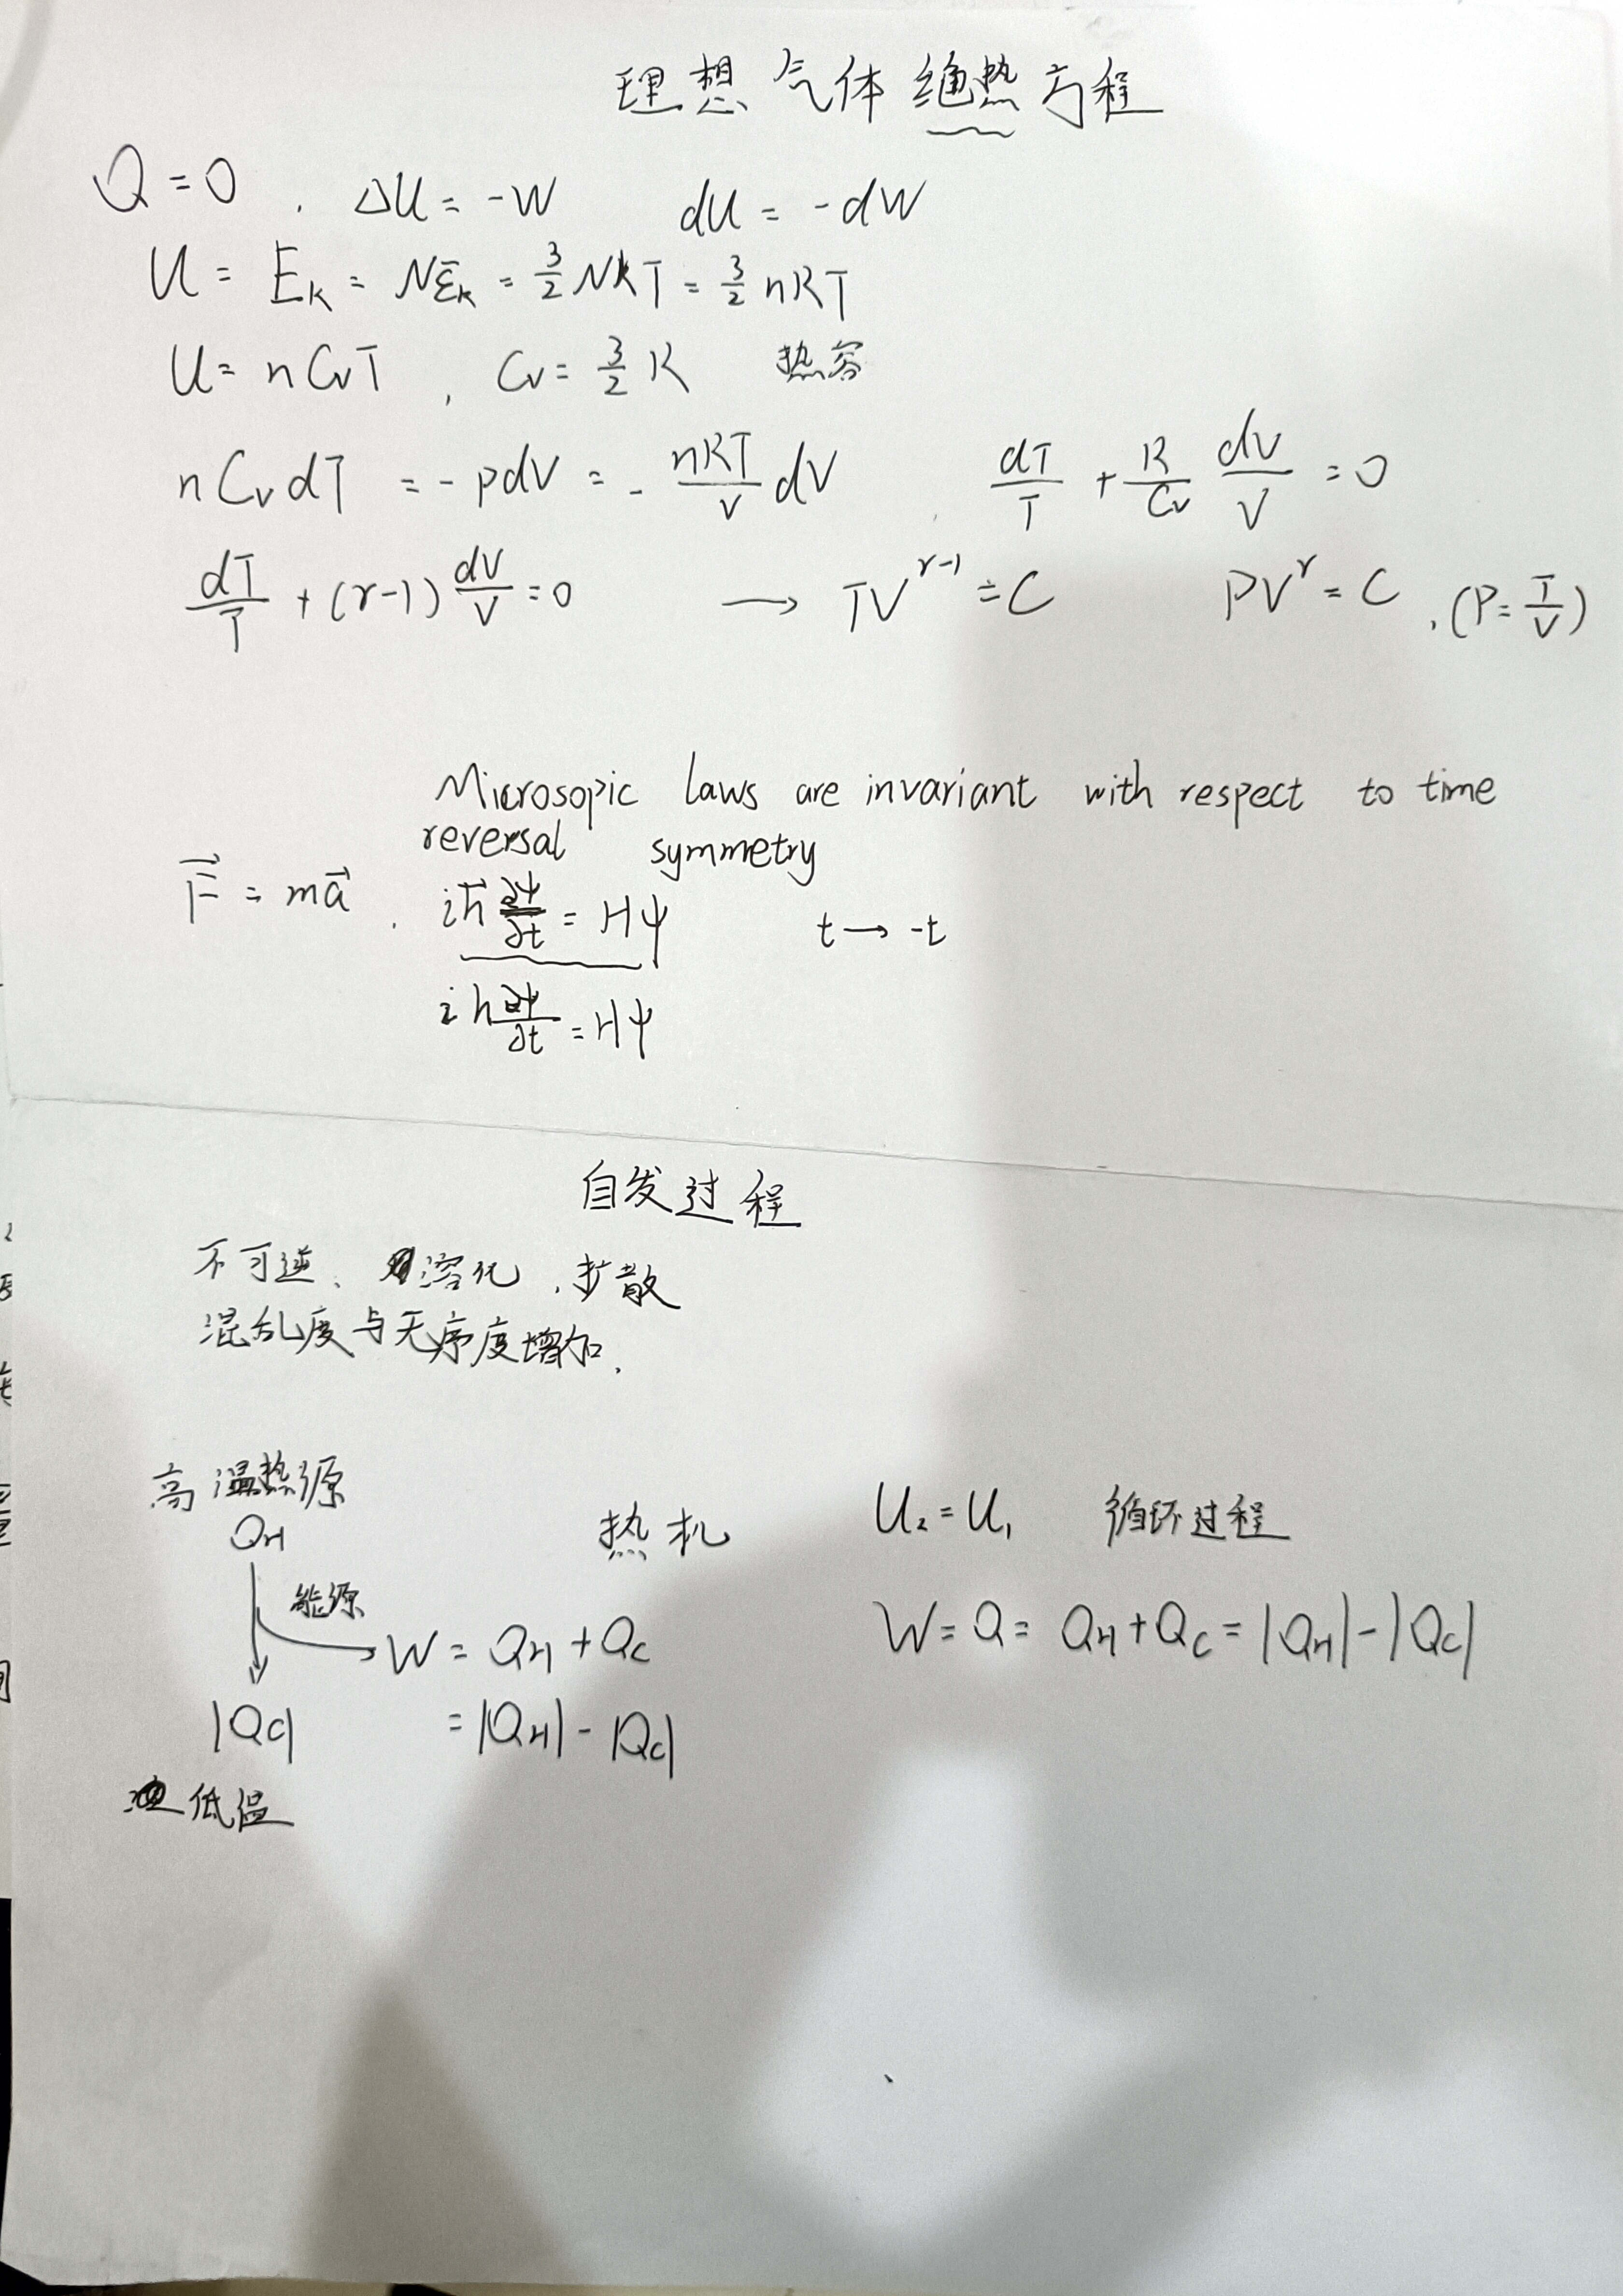 理想气体绝热方程
Q = 0 . ΔU = -W dU = -dW
U = E_k = Nε̄_k = 3/2 NkT = 3/2 nRT
U = nC_vT , C_v = 3/2 R 热容
nC_vdT = -pdV = - nRT/V dV . dT/T + R/C_v dV/V = 0
dT/T + (γ-1) dV/V = 0 → TV^(γ-1) = C PV^γ = C , (P = T/V)
Microsopic laws are invariant with respect to time
reversal symmetry
F⃗ = ma⃗ . iħ ∂ψ/∂t = Hψ t → -t
iħ ∂ψ/∂t = Hψ
自发过程
不可逆、溶化 . 扩散
混乱度与无序度增加.
高温热源
Q_H 热机 U₂ = U₁ 循环过程
能源
W = Q_H + Q_C W = Q = Q_H + Q_C = |Q_H| - |Q_C|
|Q_C| = |Q_H| - |Q_C|
低温